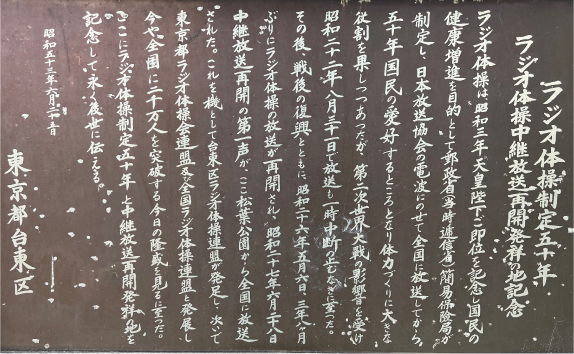 ラジオ体操制定五十年
ラジオ体操中継放送再開発祥の地記念
ラジオ体操は昭和三年、天皇陛下ご即位を記念し国民の
健康増進を目的として郵政省(当時逓信省)簡易保険局が
制定し、日本放送協会の電波にのせて全国に放送してから、
五十年国民の愛好するところとなり体力づくりに大きな
役割を果しつつあったが、第二次世界大戦の影響を受け
昭和二十二年八月三十一日で放送も一時中断の止むなきに至った。
その後、戦後の復興とともに、昭和二十六年五月六日、三年八ヶ月
ぶりにラジオ体操の放送が再開され、昭和二十七年六月二十八日
中継放送再開の第一声が、ここ松葉公園から全国に放送
された。これを機として台東区ラジオ体操連盟が発足し、次いで
東京都ラジオ体操会連盟及び全国ラジオ体操連盟と発展し
今や全国に二千万人を突破する今日の隆盛を見るに至った。
ここにラジオ体操制定五十年と中継放送再開発祥の地を
記念して永く後世に伝える。
昭和五十三年六月二十五日
東京都台東区